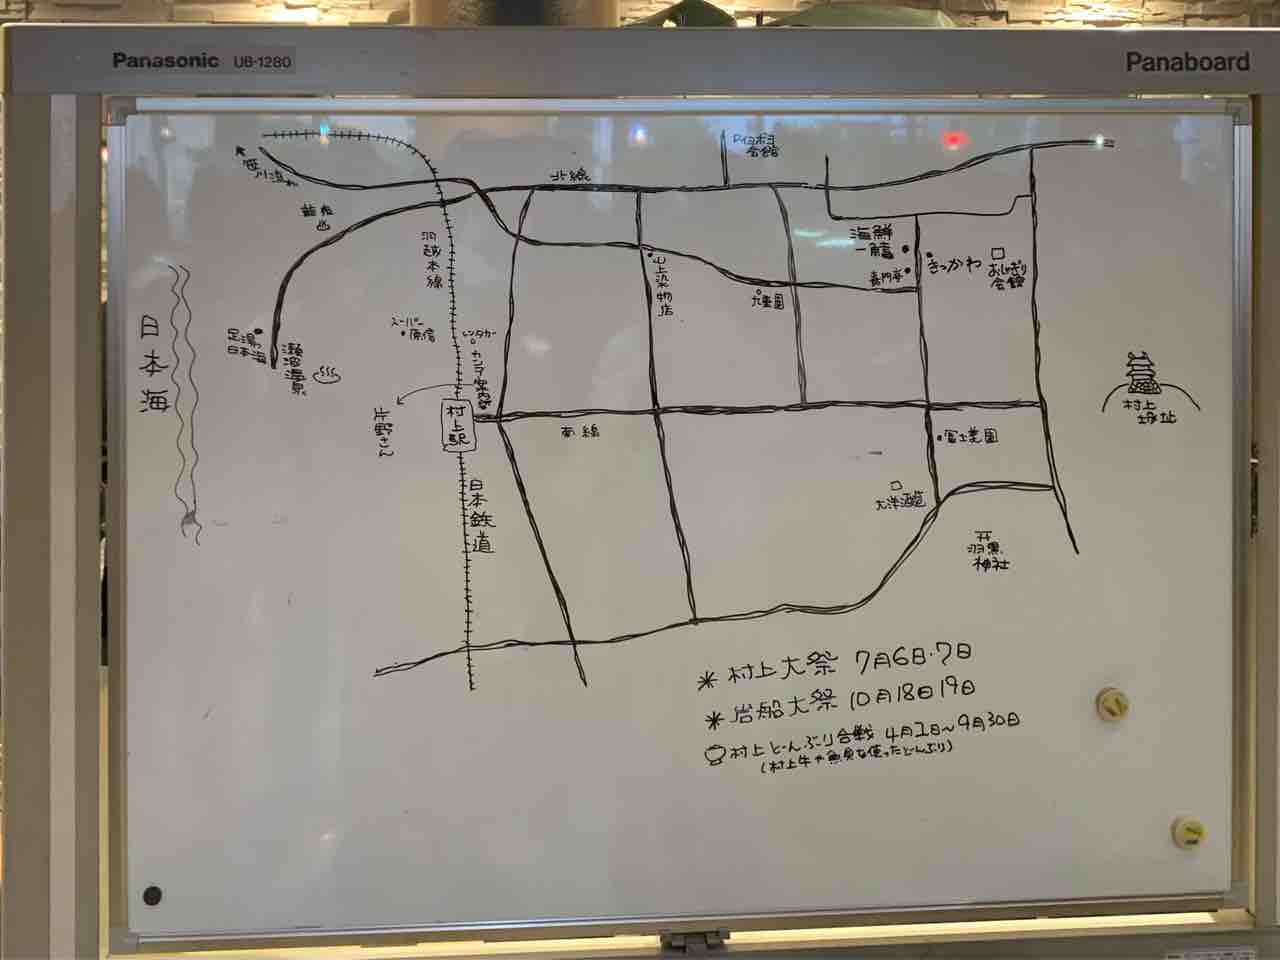 Panasonic UB-1280
Panaboard
イヨボヤ
会館
笹川流れ
北線
龍泉
羽越本線
海鮮
一鰭
きっかわ
おしゃぎり
会館
山上染物店
九重園
日本海
スーパー
原信
レンタカー
足湯
日本海
瀬波温泉
村上
城址
片野さん
村上駅
南線
富士美園
日本鉄道
大洋酒造
羽黒
神社
＊村上大祭 7月6日・7日
＊岩船大祭 10月18日19日
村上どんぶり合戦 4月1日〜9月30日
(村上牛や魚貝を使ったどんぶり)